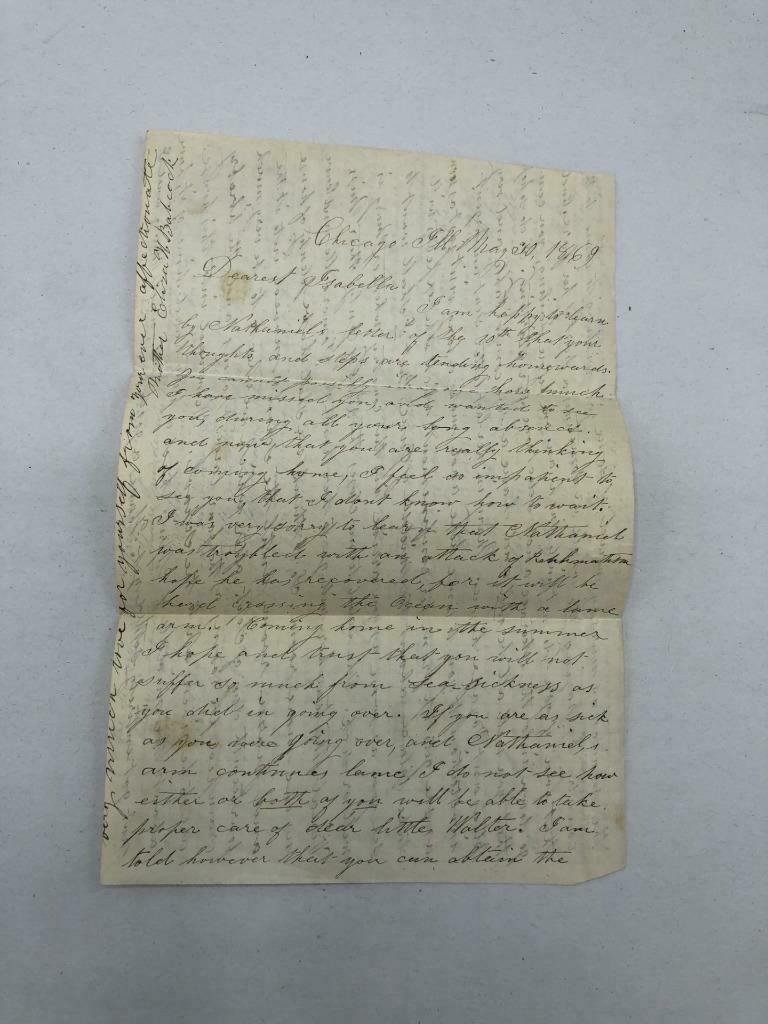 Chicago Ill. May 30, 1869
Dearest Isabella
I am happy to learn
by Nathaniel's letter of the 10th that your
thoughts and steps are tending homewards.
You cannot possibly how much
I have missed you, and wanted to see
you, during all your long absence.
and now, that you are really thinking
of coming home, I feel so impatient to
see you, that I dont know how to wait.
I was very sorry to learn that Nathaniel
was troubled with an attack of
hope he has recovered, for it will be
hard crossing the Ocean with a lame
arm. Coming home in the summer
I hope and trust that you will not
suffer so much from Sea-Sickness as
you did in going over. If you are as sick
as you were going over, and Nathaniel's
arm continues lame, I do not see how
either or both of you will be able to take
proper care of dear little Walter. I am
told however that you can obtain the
very much love for yourself from your ever affectionate
Mother Eliza W. Babcock